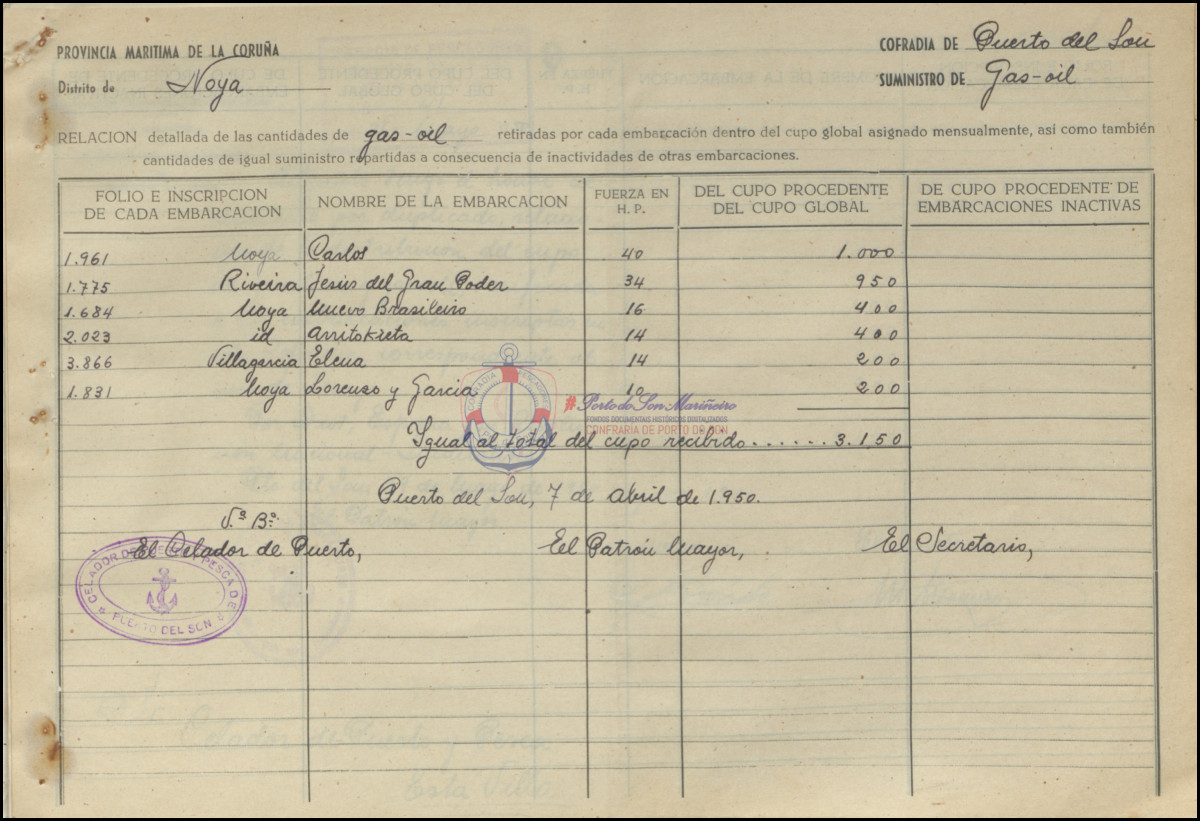 PROVINCIA MARITIMA DE LA CORUÑA
COFRADIA DE Puerto del Son
Distrito de Noya
SUMINISTRO DE Gas-oil
RELACION detallada de las cantidades de gas-oil retiradas por cada embarcación dentro del cupo global asignado mensualmente, así como también
cantidades de igual suministro repartidas a consecuencia de inactividades de otras embarcaciones.
FOLIO E INSCRIPCION DE CADA EMBARCACION
NOMBRE DE LA EMBARCACION
FUERZA EN H. P.
DEL CUPO PROCEDENTE DEL CUPO GLOBAL
DE CUPO PROCEDENTE DE EMBARCACIONES INACTIVAS
1.961 Noya Carlos 40 1.000
1.775 Riveira Jesús del Gran Poder 34 950
1.684 Noya Nuevo Brasileiro 16 400
2.023 id Arritokieta 14 400
3.866 Villagarcia Elena 14 200
1.831 Noya Lorenzo y Garcia 10 200
#Porto do Son Mariñeiro
FONDOS DOCUMENTAIS HISTÓRICOS DIXITALIZADOS
CONFRARÍA DE PORTO DO SON
Igual al total del cupo recibido...... 3.150
Puerto del Son, 7 de abril de 1.950.
V.º B.º
El Celador de Puerto, El Patrón Mayor, El Secretario,
CELADOR DE PUERTO Y PESCA DE
PUERTO DEL SON